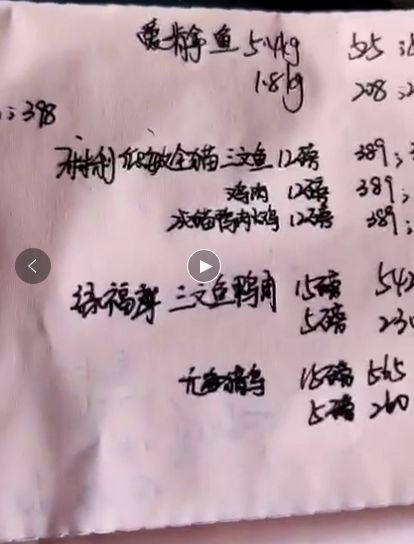 爱肯拿 鱼 5.44g 525
1.81g 208
398
低敏全猫 三文鱼 12磅 389
鸡肉 12磅 389
鸭肉火鸡 12磅 389
绿福 三文鱼鸭肉 15磅 542
5磅 230
15磅 565
5磅 260